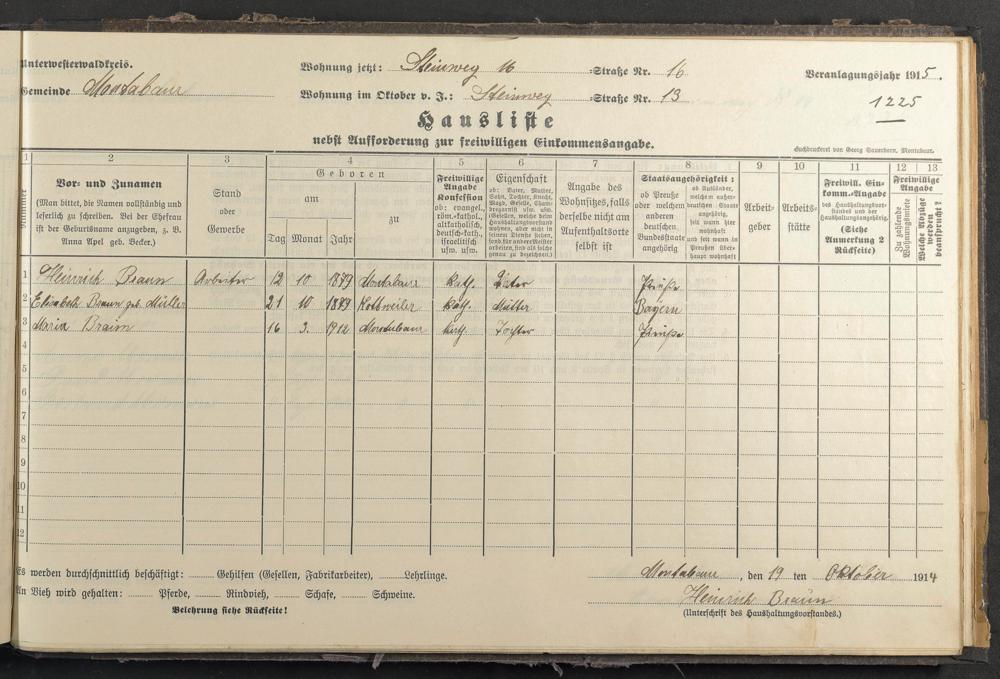 Unterwesterwaldkreis.
Gemeinde Montabaur
Wohnung jetzt: Steinweg 16 -Straße Nr. 16
Wohnung im Oktober v. J.: Steinweg -Straße Nr. 13
Veranlagungsjahr 1915.
1225
Hausliste
nebst Aufforderung zur freiwilligen Einkommensangabe.
Buchdruckerei von Georg Sauerborn, Montabaur.
1 2 3 4 5 6 7 8 9 10 11 12 13
Nummer
Vor- und Zunamen
(Man bittet, die Namen vollständig und
leserlich zu schreiben. Bei der Ehefrau
ist der Geburtsname anzugeben, z. B.
Anna Apel geb. Becker.)
Stand
oder
Gewerbe
Geboren
am
zu
Tag Monat Jahr
Freiwillige
Angabe
Konfession
ob: evangel.,
röm.-kathol.,
altkatholisch,
deutsch-kath.,
israelitisch
usw. usw.
Eigenschaft
ob: Vater, Mutter,
Sohn, Tochter, Knecht,
Magd, Geselle, Cham-
bregarnist usw. usw.
(Gesellen, welche beim
Haushaltungsvorstand
wohnen, aber nicht in
seinem Dienste stehen,
sond. für andere Meister
arbeiten, sind als solche
genau zu bezeichnen.)
Angabe des
Wohnsitzes, falls
derselbe nicht am
Aufenthaltsorte
selbst ist
Staatsangehörigkeit:
ob Preuße
oder welchem
anderen
deutschen
Bundesstaate
angehörig
ob Ausländer,
welchem außer-
deutschen Staate
angehörig,
seit wann hier
wohnhaft
und seit wann in
Preußen über-
haupt wohnhaft
Arbeit-
geber
Arbeits-
stätte
Freiwill. Ein-
komm.-Angabe
des Haushaltungsvor-
standes und der
Haushaltungsangehörig.
(Siehe
Anmerkung 2
Rückseite)
Freiwillige
Angabe
Zu zahlende
Wohnungsmiete
Welche Abzüge
werden
beansprucht?
1 Heinrich Braun Arbeiter 12 10 1879 Montabaur kath. Vater Preuße
2 Elisabeth Braun geb. Müller 21 10 1889 Kottweiler kath. Mutter Bayern
3 Maria Braun 16 3. 1912 Montabaur kath. Tochter Preuße
4
5
6
7
8
9
10
11
12
Es werden durchschnittlich beschäftigt: Gehilfen (Gesellen, Fabrikarbeiter), Lehrlinge.
An Vieh wird gehalten: Pferde, Rindvieh, Schafe, Schweine.
Belehrung siehe Rückseite!
Montabaur, den 19 ten Oktober 1914
Heinrich Braun
(Unterschrift des Haushaltungsvorstandes.)